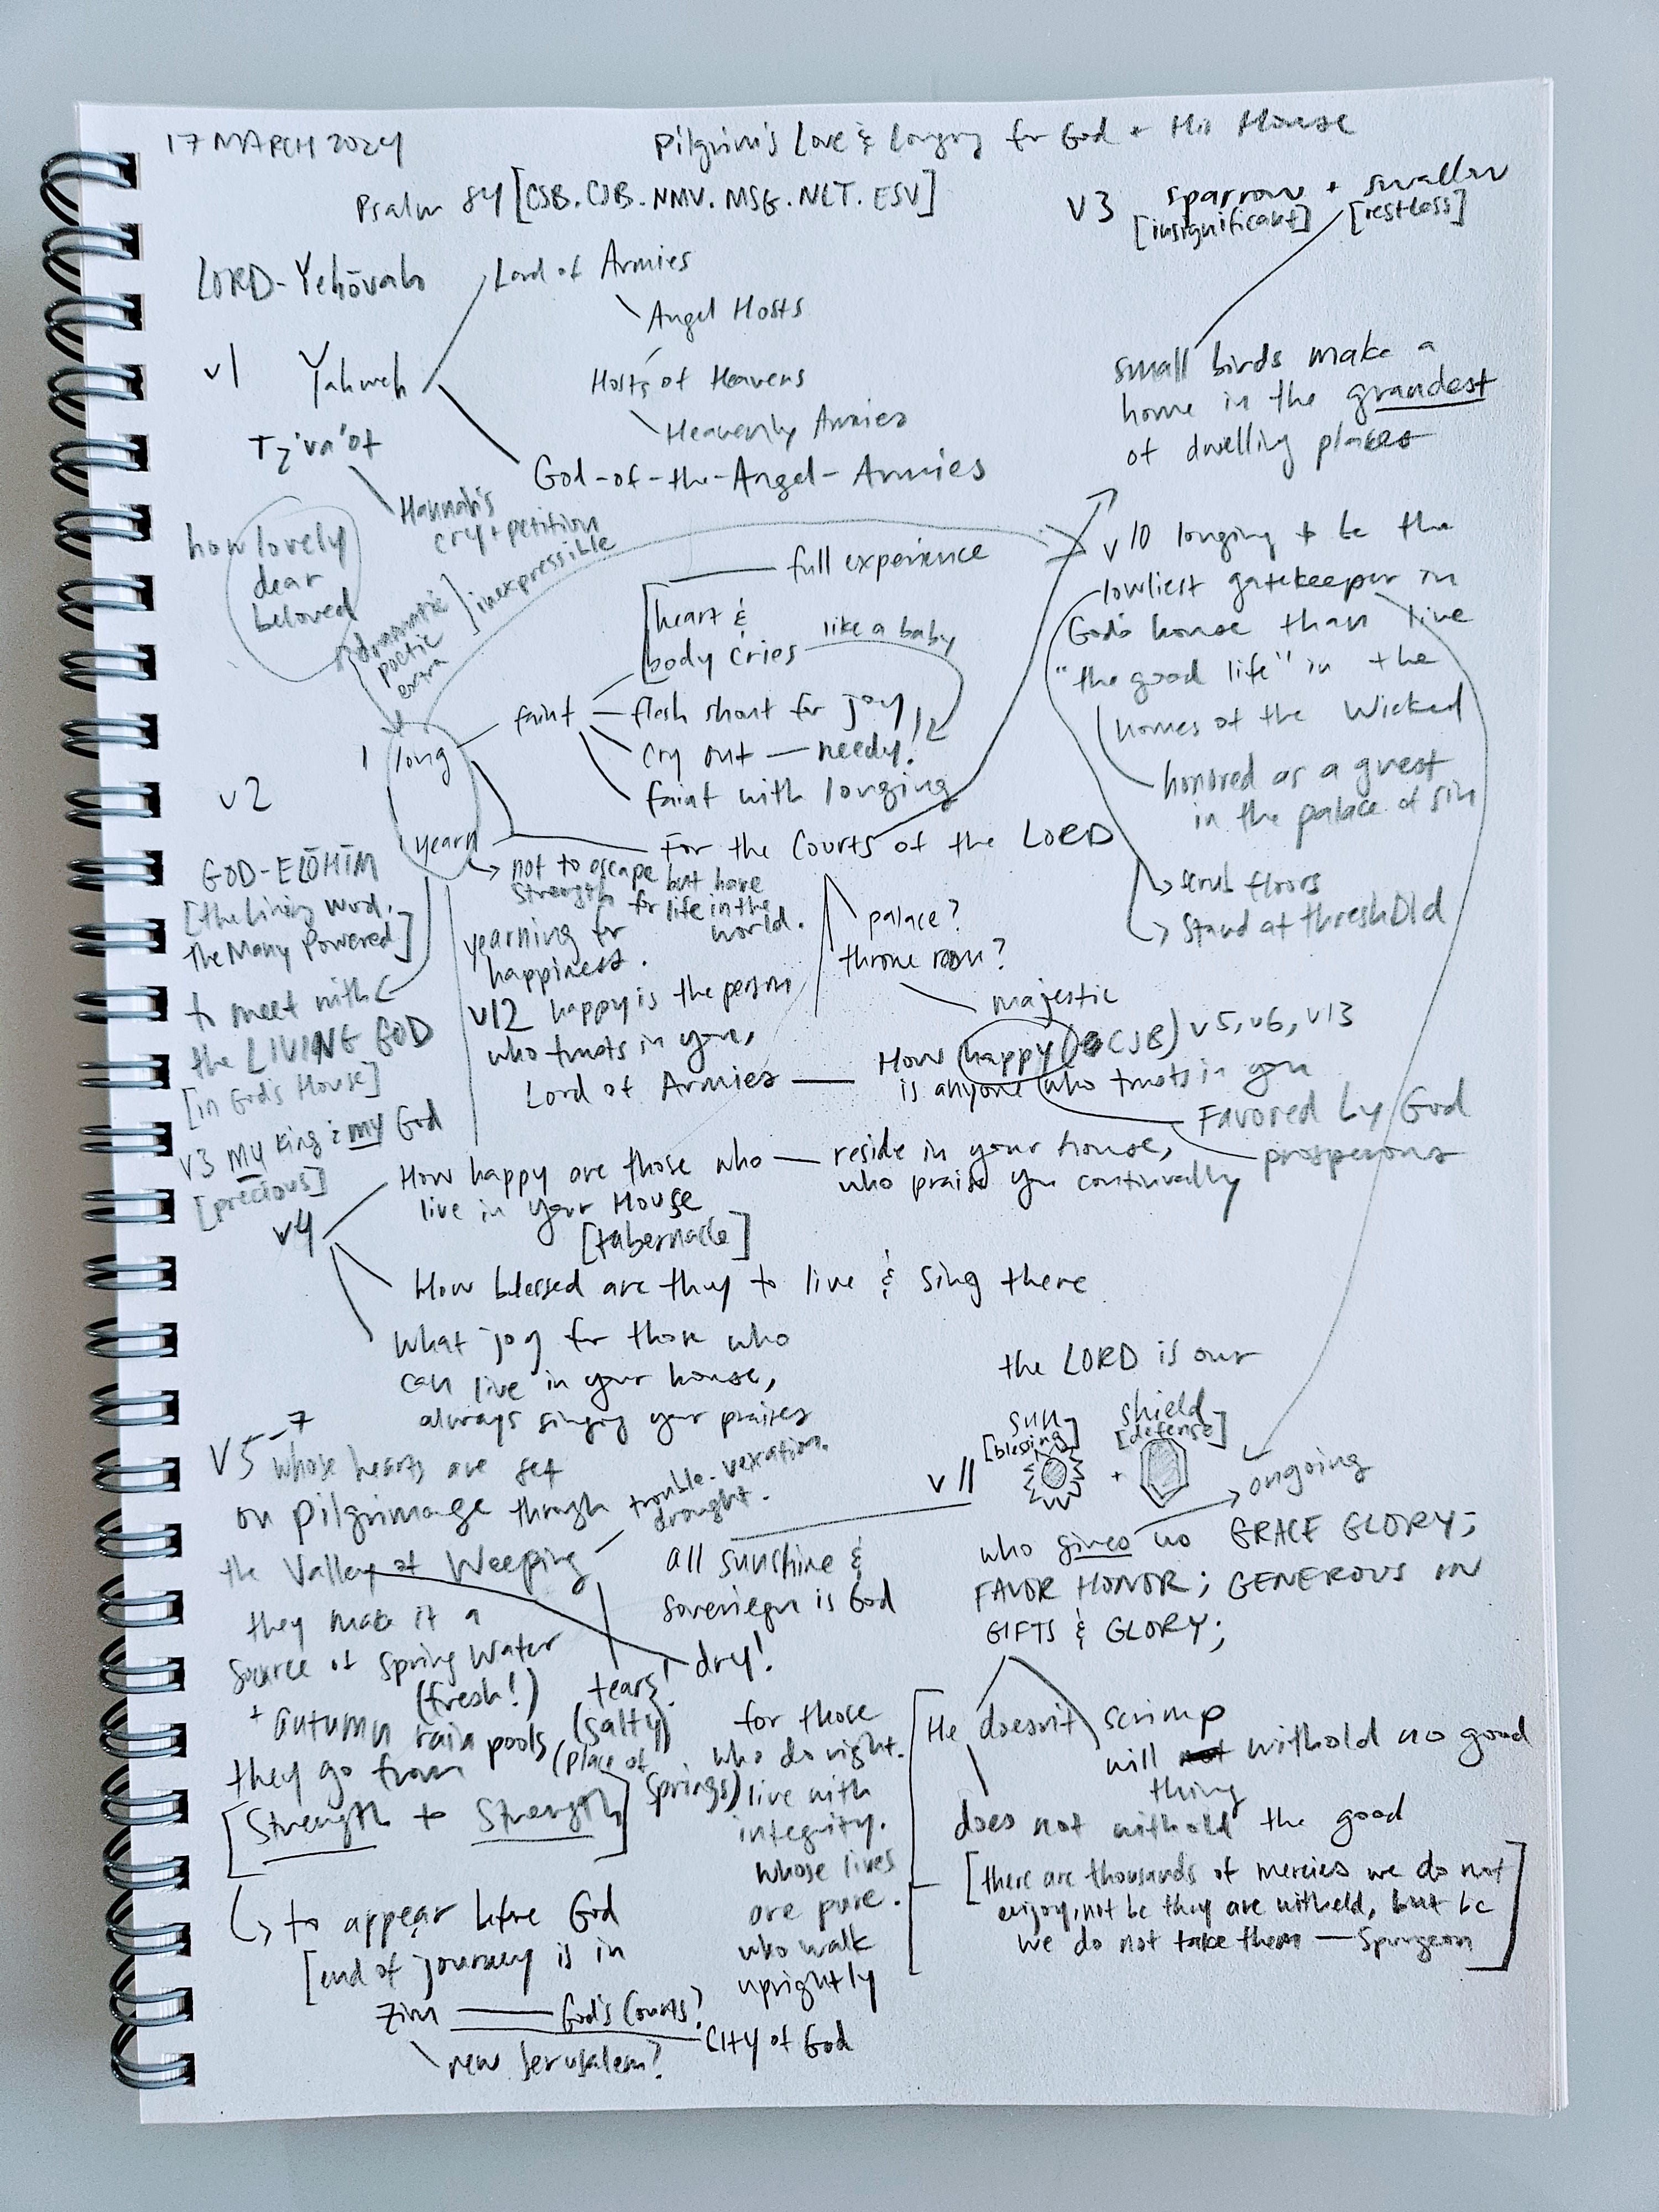 17 MARCH 2024
Pilgrim's Love & Longing for God + His House
Psalm 84 [CSB. CJB. NMV. MSG. NLT. ESV]
v3 sparrow + swallow
[insignificant] [restless]
small birds make a
home in the grandest
of dwelling places
LORD - Yehōvah
v1 Yahweh
Tz'va'ot
Lord of Armies
Angel Hosts
Hosts of Heavens
Heavenly Armies
God-of-the-Angel-Armies
Hannah's
cry + petition
how lovely
dear
beloved
dramatic
poetic
extra
inexpressible
v10 longing to be the
lowliest gatekeeper in
God's house than live
"the good life" in the
homes of the Wicked
honored as a guest
in the palace of sin
scrub floors
Stand at threshold
v2
long
yearn
faint
full experience
heart &
body cries
like a baby
flesh shout for joy
cry out — needy!
faint with longing
For the Courts of the LORD
not to escape but have
strength for life in the
world.
palace?
throne room?
majestic
GOD-ELŌHĪM
[the Living Word,
the Many Powered]
to meet with
the LIVING GOD
[in God's House]
v3 my King & my God
[precious]
yearning for
happiness.
v12 happy is the person
who trusts in you,
Lord of Armies
How happy (CJB) v5, v6, v13
is anyone who trusts in you
Favored by God
prosperous
v4
How happy are those who
live in your House
[tabernacle]
reside in your house,
who praise you continually
How blessed are they to live & sing there
What joy for those who
can live in your house,
always singing your praises
v5-7
whose hearts are set
on pilgrimage through
the Valley of Weeping
trouble. vexation.
drought.
they make it a
source of Spring Water
(fresh!)
+ autumn rain pools
tears!
(salty)
dry!
(place of
springs)
they go from
[Strength to Strength]
to appear before God
[end of journey is in
Zion — God's Courts?
new Jerusalem?
City of God
the LORD is our
v11
sun
[blessing]
+
shield
[defense]
ongoing
all sunshine &
sovereign is God
who gives us GRACE GLORY;
FAVOR HONOR; GENEROUS IN
GIFTS & GLORY;
for those
who do right.
live with
integrity.
whose lives
are pure.
who walk
uprightly
He doesn't scrimp
will withold no good
thing
does not withold the good
[there are thousands of mercies we do not
enjoy, not bc they are witheld, but bc
we do not take them — Spurgeon]